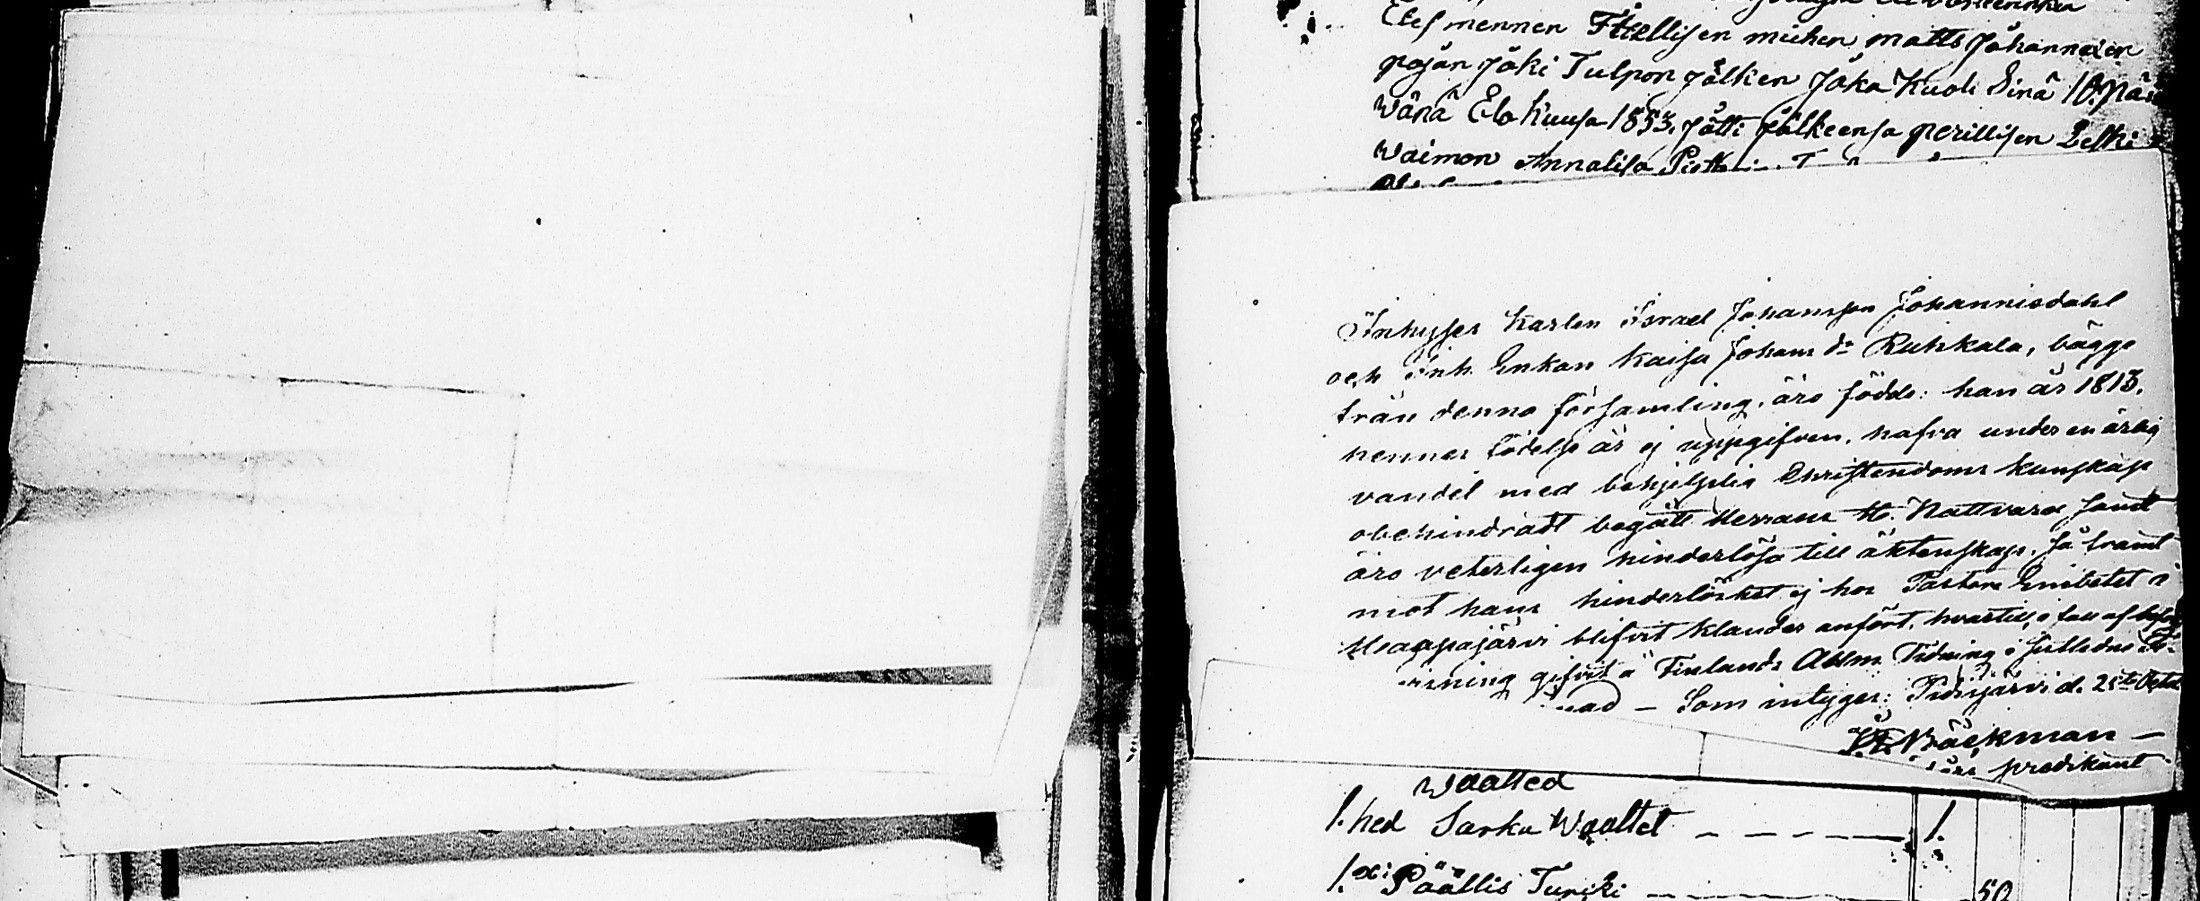 Edesmennen Itzellisen miehen matts Johannexen
pojan Jåki Tulpon jälken Joka Kuoli Sinä 10 päi
wänä Elo Kuusa 1853. Jätti Jälkeensa perillisen Leski
Waimon Annalisa
Inhyses Karlen Israel Johansson Johannisdahl
och Inh. Enkan Kaisa Johans dr Ruhkala, bägge
från denna församling, äro födde: han år 1813,
hennes födelse år ej uppgifven, hafva under en ärlig
vandel med behjelplig Christendoms kunskap
obehindradt begått Herrans H. Nattvard samt
äro veterligen hinderlösa till äktenskap, så framt
mot hans hinderlöshet ej hos Pastors Embetet i
Alajärvi blifvit klander anfört, hvartill, i fall af
gifvit i Finlands Allm. Tidning
— Som intygar: Pihtipjärvi d. 25te Octob
Bäckman —
predikant
Waatted
1. hed Sarka Waattet - - - - 1.
1. xi Päällis Turcki - - - - 50